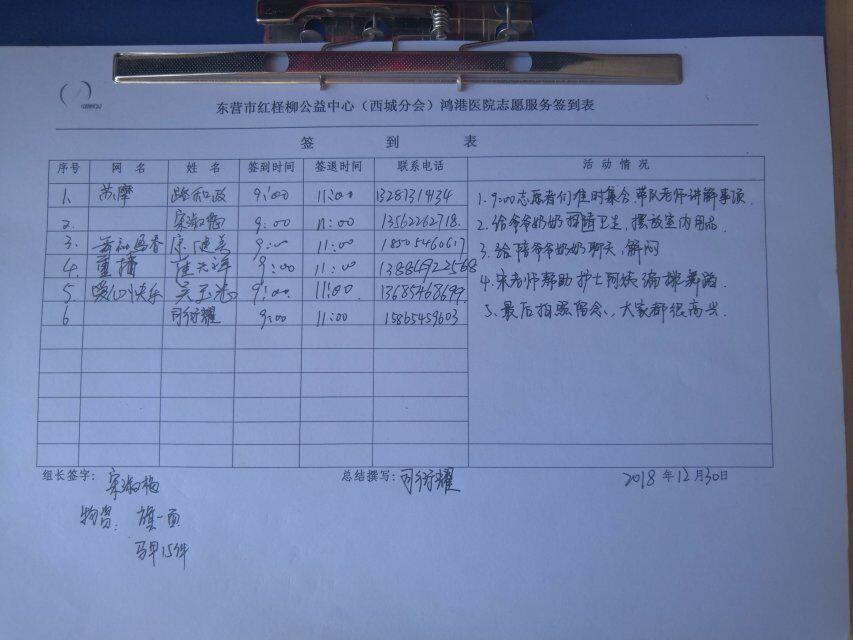 东营市红柽柳公益中心（西城分会）鸿港医院志愿服务签到表
签 到 表
序号 网 名 姓 名 签到时间 签退时间 联系电话 活 动 情 况
1. 苏摩 路和政 9:00 11:00 13287319134
2. 宋淑梅 9:00 11:00 13562262718.
3. 9:00 11:00 18505460617
4. 9:00 11:00 13884922568
5. 爱心快乐 9:00 11:00 13685468699
6 司衍耀 9:00 11:00 15865459603
1. 9:00志愿者们准时集合,带队老师讲解事项.
2. 给爷爷奶奶打扫卫生,摆放室内用品.
3. 给陪爷爷奶奶聊天,解闷
4. 宋老师帮助护士阿姨编排舞蹈.
5. 最后拍照留念,大家都很高兴.
组长签字: 宋淑梅 总结撰写: 司衍耀 2018 年 12 月 30 日
物资: 旗一面
马甲15件